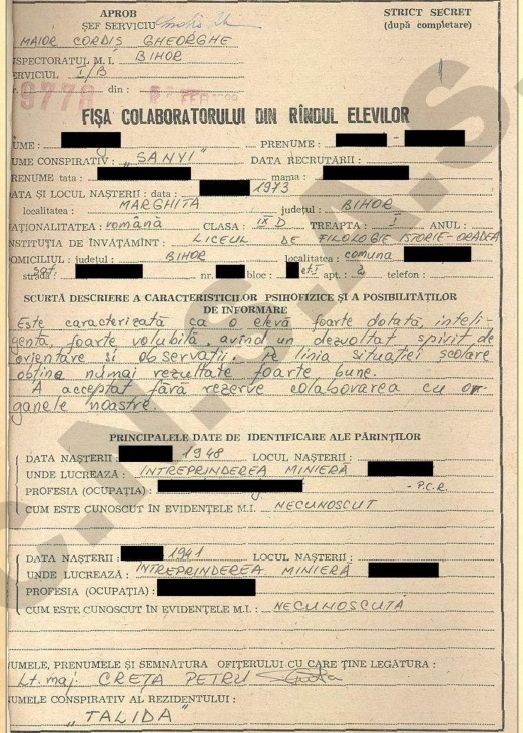 APROB
ȘEF SERVICIU
STRICT SECRET
(după completare)
MAIOR CORDIȘ GHEORGHE
NSPECTORATUL M. I. BIHOR
ERVICIUL I/B
9778 din :
FIȘA COLABORATORULUI DIN RÎNDUL ELEVILOR
UME : PRENUME : -
UME CONSPIRATIV : „SANYI" DATA RECRUTĂRII :
RENUME tata : mama :
ATA ȘI LOCUL NAȘTERII : data : 1973
localitatea : MARGHITA județul : BIHOR
AȚIONALITATEA : română CLASA : IX D TREAPTA : I ANUL :
NSTITUȚIA DE ÎNVĂȚĂMÎNT : LICEUL DE FILOLOGIE ISTORIE-ORADEA
OMICILIUL : județul BIHOR localitatea : comuna
strada nr. bloc : et.I apt. : 2 telefon :
SCURTĂ DESCRIERE A CARACTERISTICILOR PSIHOFIZICE ȘI A POSIBILITĂȚILOR
DE INFORMARE
Este caracterizată ca o elevă foarte dotată, inteli-
gentă, foarte volubilă, avînd un dezvoltat spirit de
orientare și observații. Pe linia situației școlare
obține numai rezultate foarte bune.
A acceptat fără rezerve colaborarea cu or-
ganele noastre.
PRINCIPALELE DATE DE IDENTIFICARE ALE PĂRINȚILOR
DATA NAȘTERII : 1948 LOCUL NAȘTERII :
UNDE LUCREAZĂ : INTREPRINDEREA MINIERĂ
PROFESIA (OCUPAȚIA) : - P.C.R.
CUM ESTE CUNOSCUT ÎN EVIDENȚELE M.I. : NECUNOSCUT
DATA NAȘTERII : 1941 LOCUL NAȘTERII :
UNDE LUCREAZĂ : INTREPRINDEREA MINIERĂ
PROFESIA (OCUPAȚIA) :
CUM ESTE CUNOSCUT ÎN EVIDENȚELE M.I. : NECUNOSCUTĂ
NUMELE, PRENUMELE ȘI SEMNĂTURA OFIȚERULUI CU CARE ȚINE LEGĂTURA :
Lt. maj. CREȚA PETRU
NUMELE CONSPIRATIV AL REZIDENTULUI :
„TALIDA"
C.N.S.A.S.